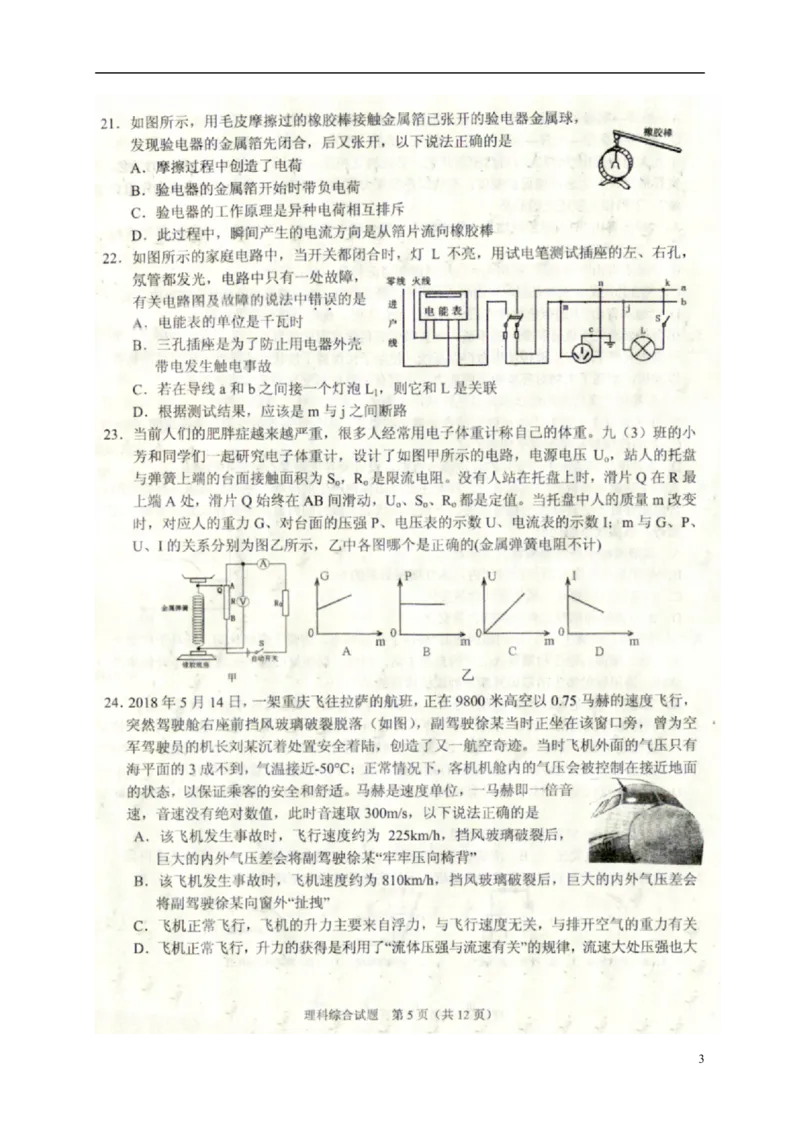 21．如图所示，用毛皮摩擦过的橡胶棒接触金属箔已张开的验电器金属球，
发现验电器的金属箔先闭合，后又张开，以下说法正确的是
橡胶棒
A．摩擦过程中创造了电荷
B．验电器的金属箔开始时带负电荷
C．验电器的工作原理是异种电荷相互排斥
D．此过程中，瞬间产生的电流方向是从箔片流向橡胶棒
22．如图所示的家庭电路中，当开关都闭合时，灯 L 不亮，用试电笔测试插座的左、右孔，
氖管都发光，电路中只有一处故障，
有关电路图及故障的说法中错误的是
A．电能表的单位是千瓦时
B．三孔插座是为了防止用电器外壳
带电发生触电事故
零线 火线
进户线
电能表
n k a
m j b
e S L
C．若在导线 a 和 b 之间接一个灯泡 L₁，则它和 L 是关联
D．根据测试结果，应该是 m 与 j 之间断路
23．当前人们的肥胖症越来越严重，很多人经常用电子体重计称自己的体重。九（3）班的小
芳和同学们一起研究电子体重计，设计了如图甲所示的电路，电源电压 U₀，站人的托盘
与弹簧上端的台面接触面积为 S₀，R₀是限流电阻。没有人站在托盘上时，滑片 Q 在 R 最
上端 A 处，滑片 Q 始终在 AB 间滑动，U₀、S₀、R₀都是定值。当托盘中人的质量 m 改变
时，对应人的重力 G、对台面的压强 P、电压表的示数 U、电流表的示数 I；m 与 G、P、
U、I 的关系分别为图乙所示，乙中各图哪个是正确的(金属弹簧电阻不计)
A
Q A
金属弹簧 R V R₀
B
S
自动开关
甲
G 0 m A
P 0 m B
U 0 m C
I 0 m D
乙
24. 2018 年 5 月 14 日，一架重庆飞往拉萨的航班，正在 9800 米高空以 0.75 马赫的速度飞行，
突然驾驶舱右座前挡风玻璃破裂脱落（如图），副驾驶徐某当时正坐在该窗口旁，曾为空
军驾驶员的机长刘某沉着处置安全着陆，创造了又一航空奇迹。当时飞机外面的气压只有
海平面的 3 成不到，气温接近-50℃；正常情况下，客机机舱内的气压会被控制在接近地面
的状态，以保证乘客的安全和舒适。马赫是速度单位，一马赫即一倍音
速，音速没有绝对数值，此时音速取 300m/s，以下说法正确的是
A．该飞机发生事故时，飞行速度约为 225km/h，挡风玻璃破裂后，
巨大的内外气压差会将副驾驶徐某“牢牢压向椅背”
B．该飞机发生事故时，飞机速度约为 810km/h，挡风玻璃破裂后，巨大的内外气压差会
将副驾驶徐某向窗外“扯拽”
C．飞机正常飞行，飞机的升力主要来自浮力，与飞行速度无关，与排开空气的重力有关
D．飞机正常飞行，升力的获得是利用了“流体压强与流速有关”的规律，流速大处压强也大
理科综合试题 第 5 页（共 12 页）
3